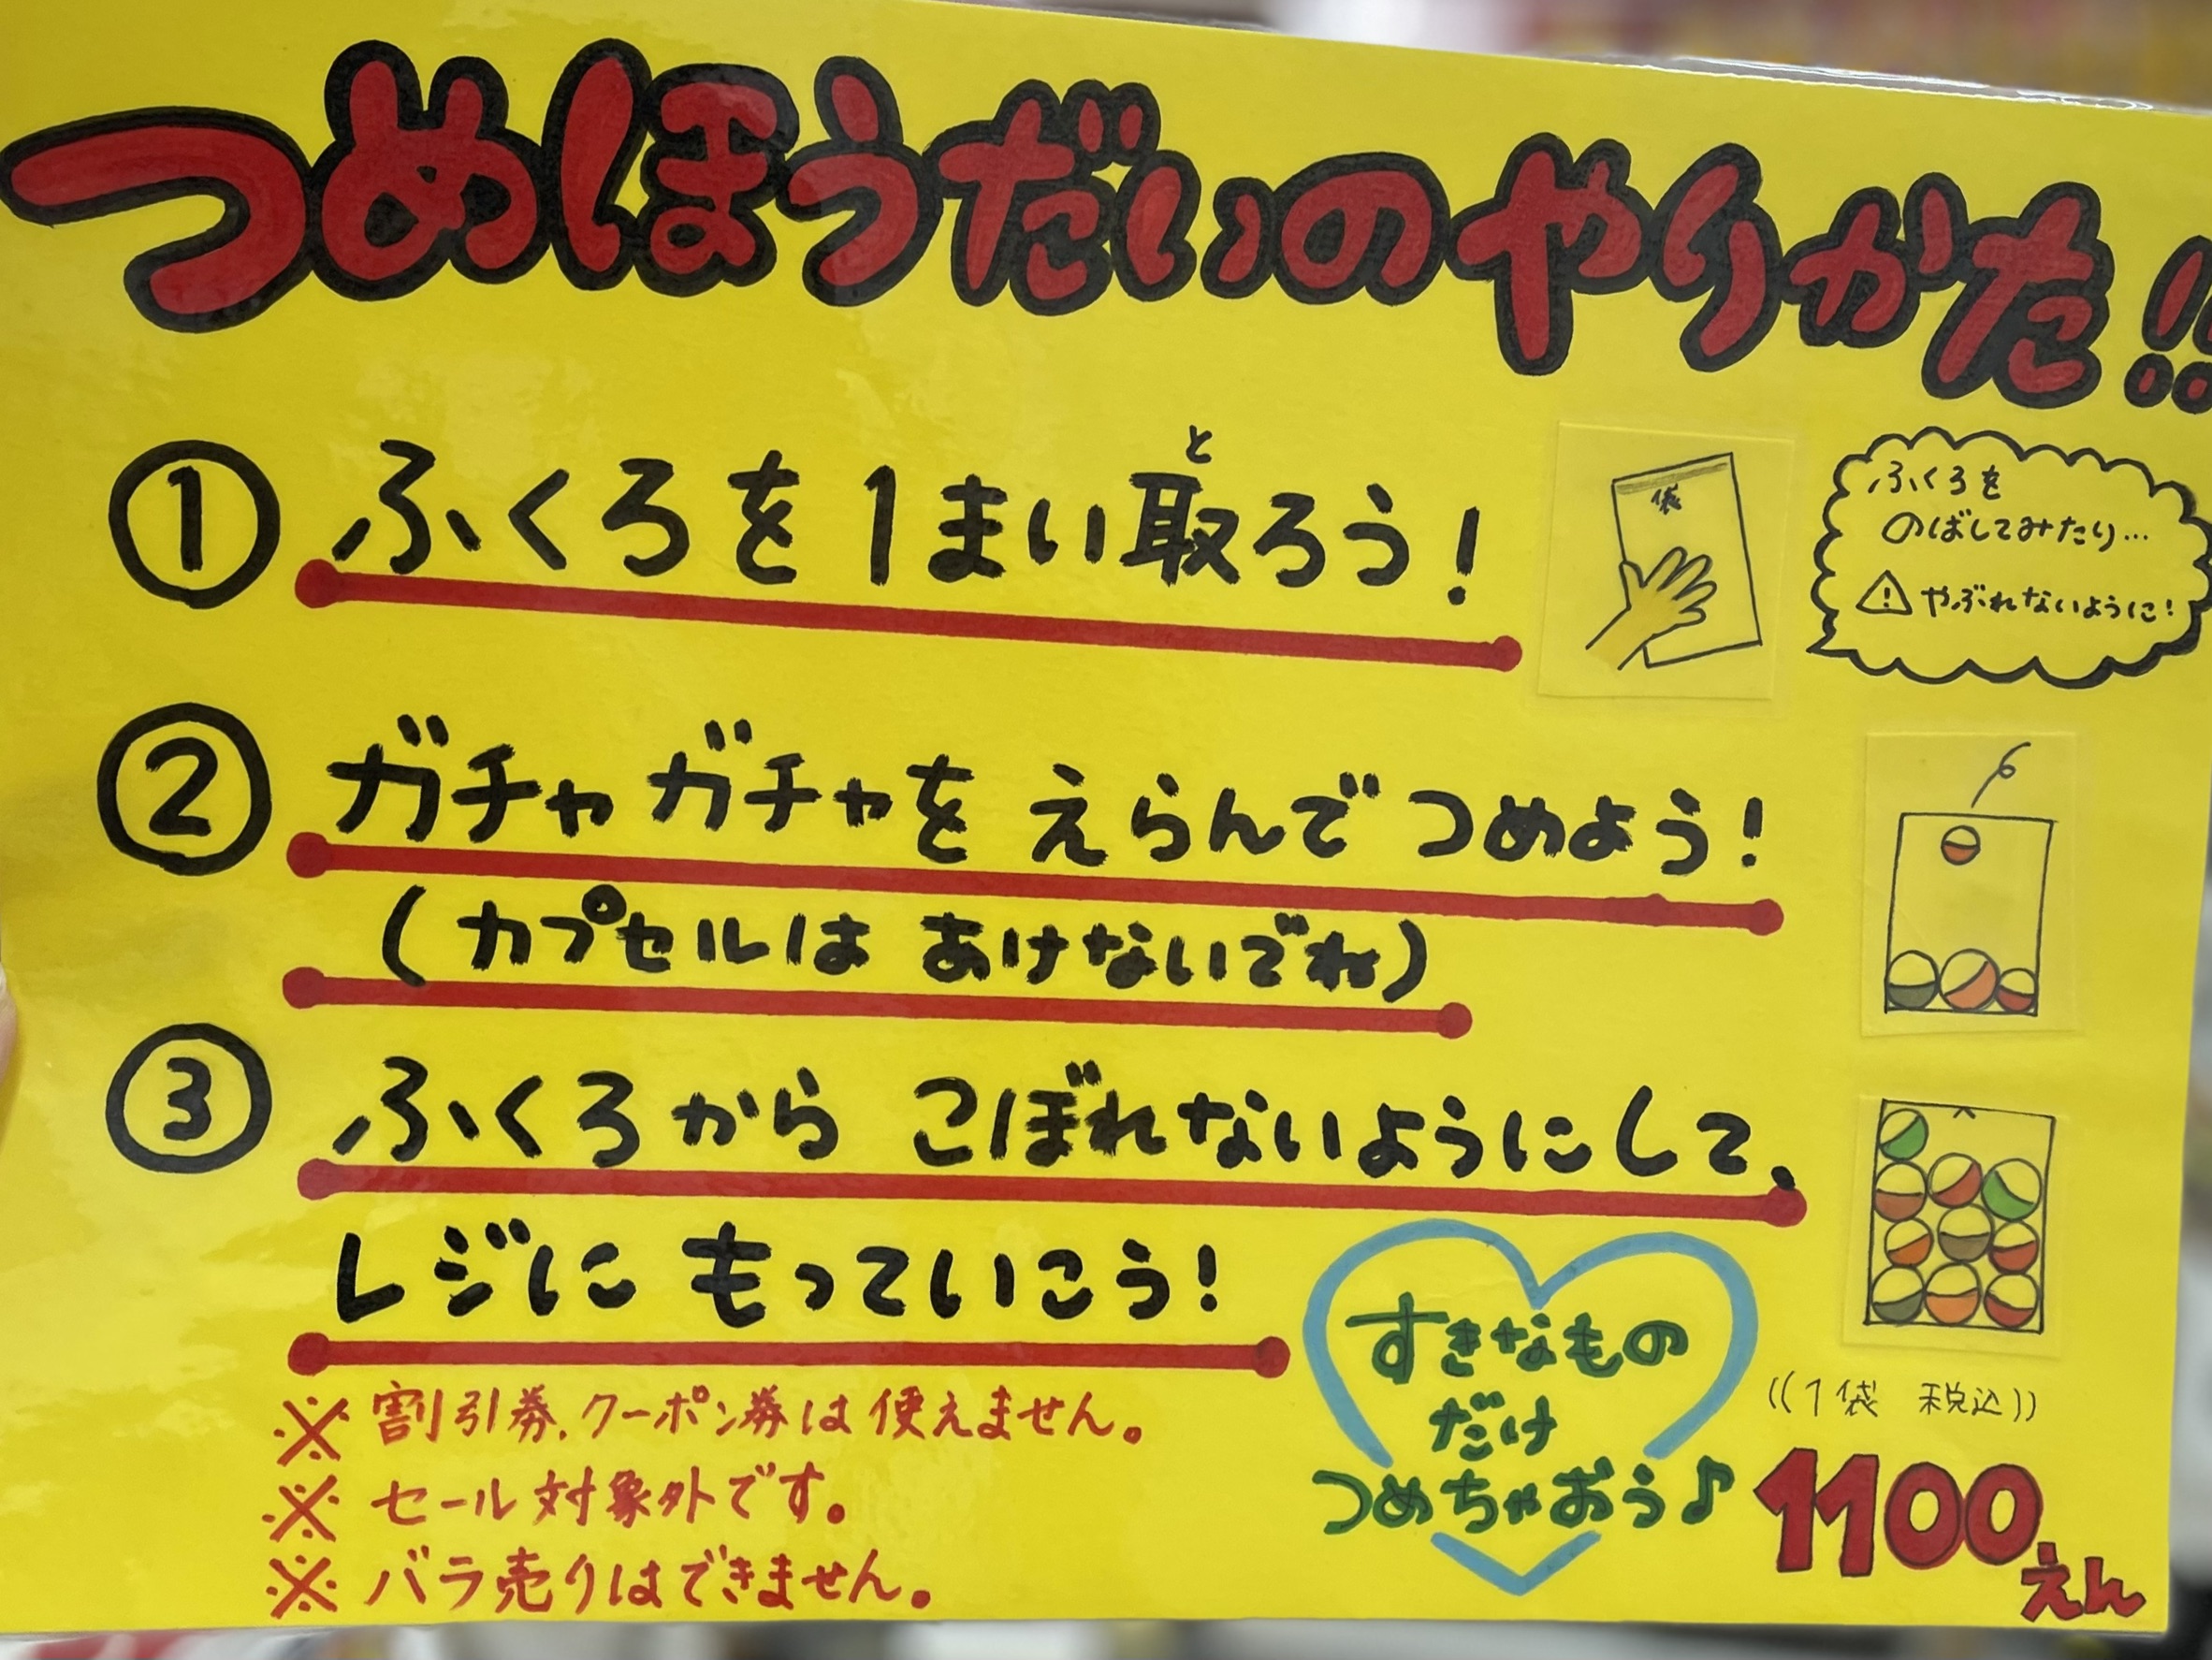 つめほうだいのやりかた!!
① ふくろを1まい取ろう!
と
袋
ふくろを
のばしてみたり…
⚠やぶれないように!
② ガチャガチャを えらんで つめよう!
(カプセルは あけないでね)
③ ふくろから こぼれないようにして、
レジに もっていこう!
※ 割引券、クーポン券は使えません。
※ セール対象外です。
※ バラ売りはできません。
すきなもの
だけ
つめちゃおう♪
((1袋 税込))
1100えん